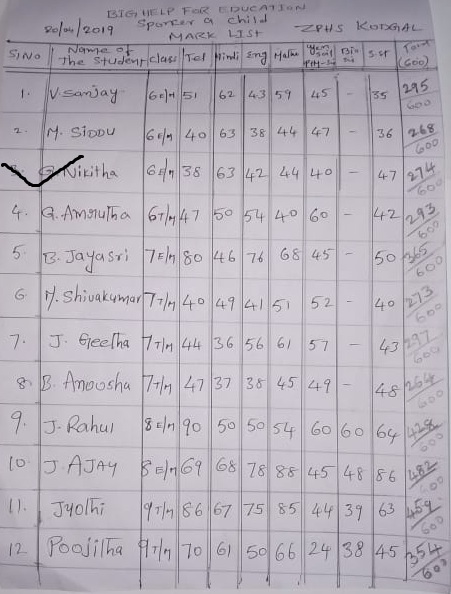 BIG HELP FOR EDUCATION
20/04/2019 Sponcer a child ZPHS KODGAL
MARK LIST
S.No Name of The Student class Tel Hindi Eng Maths Bio Sci S.st Total (600)
1. V. Sanjay 6E/M 51 62 43 59 45 - 35 295/600
2. M. SIDDU 6E/M 40 63 38 44 47 - 36 268/600
G. Nikitha 6E/M 38 63 42 44 40 - 47 274/600
4. G. Amrutha 6T/M 47 50 54 40 60 - 42 293/600
5. B. Jayasri 7E/M 80 46 76 68 45 - 50 365/600
6 M. Shivakumar 7T/M 40 49 41 51 52 - 40 273/600
7. J. Geetha 7T/M 44 36 56 61 57 - 43 297/600
8. B. Anoosha 7T/M 47 37 38 45 49 - 48 264/600
9. J. Rahul 8E/M 90 50 50 54 60 60 64 428/600
10. J. AJAY 8E/M 69 68 78 88 45 48 86 482/600
11. Jyothi 9T/M 86 67 75 85 44 39 63 459/600
12 Poojitha 9T/M 70 61 50 66 24 38 45 354/600